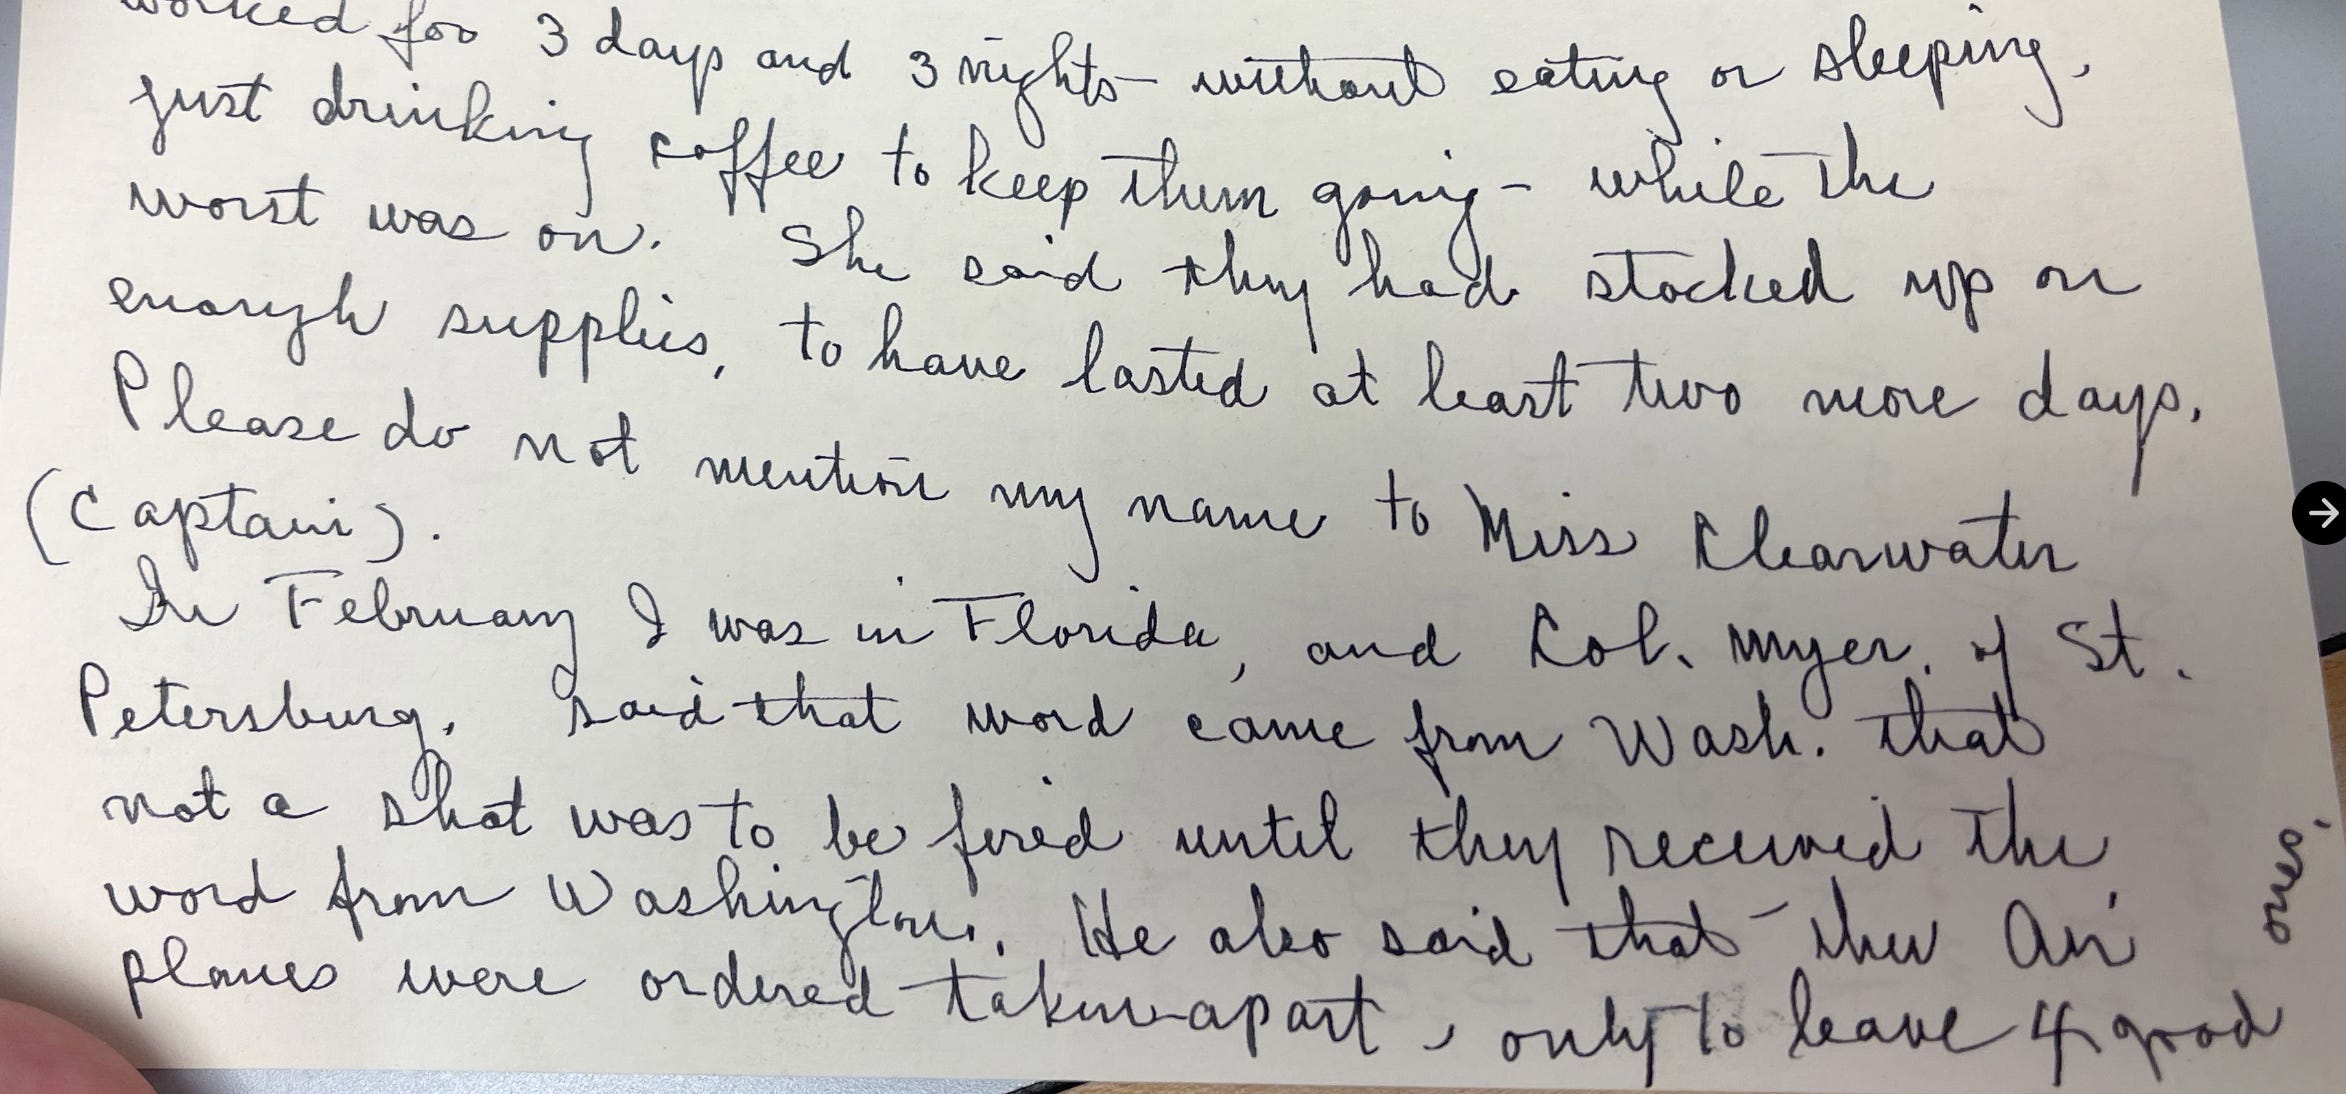 worked for 3 days and 3 nights - without eating or sleeping,
just drinking coffee to keep them going - while the
worst was on. She said they had stocked up on
enough supplies, to have lasted at least two more days.
Please do not mention my name to Miss Clearwater
(Captain).
In February I was in Florida, and Col. Myer. of St.
Petersburg. said that word came from Wash. that
not a shot was to be fired until they received the
word from Washington. He also said that the Air
planes were ordered taken apart, only to leave 4 good
ones.